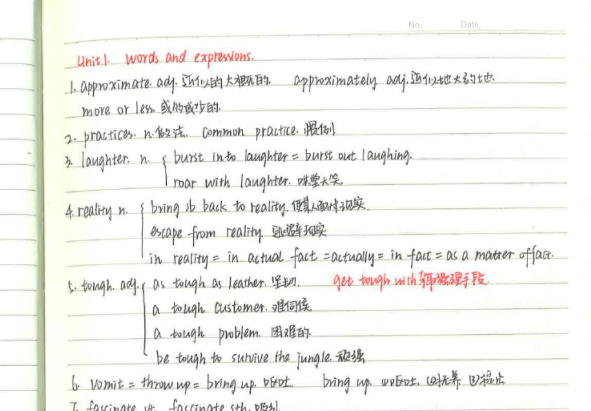 No. Date.
Unit1. words and expressions.
1. approximate. adj. 近似的 大概的. approximately adj. 近似地 大约地
more or less 或多或少的
2. practices. n. 做法. common practice. 惯例
3. laughter. n. burst into laughter = burst out laughing.
roar with laughter. 哄堂大笑
4. reality n. bring sb back to reality. 使某人面对现实
escape from reality 逃避现实
in reality = in actual fact = actually = in fact = as a matter of fact.
5. tough. adj. as tough as leather. 坚韧. get tough with 采取强硬手段
a tough customer. 难伺候
a tough problem. 困难的
be tough to survive the jungle. 顽强
6. vomit = throw up = bring up. 呕吐 bring up.
7. fascinate vt. fascinate sth.